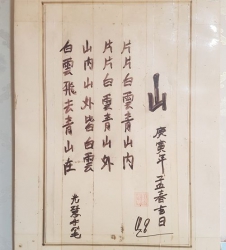 山
庚寅年孟春吉日
片片白雲青山内
片片白雲青山外
山内山外皆白雲
白雲飛去青山在